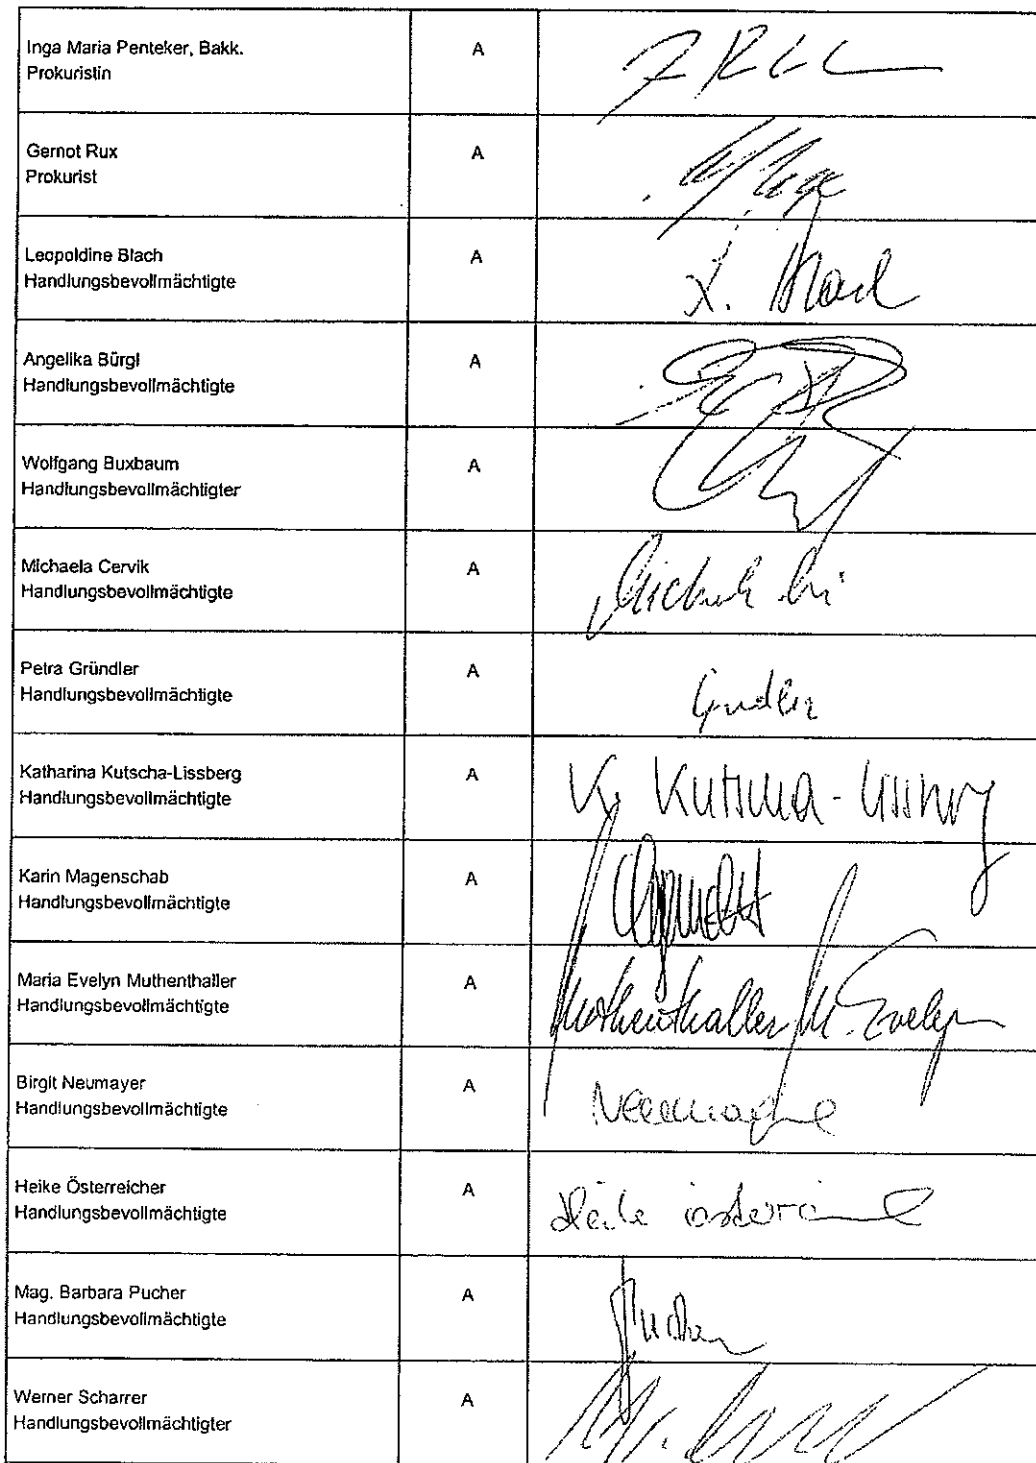 Inga Maria Penteker, Bakk.
Prokuristin
A
Gernot Rux
Prokurist
A
Leopoldine Blach
Handlungsbevollmächtigte
A
L. Blach
Angelika Bürgl
Handlungsbevollmächtigte
A
Wolfgang Buxbaum
Handlungsbevollmächtigter
A
Michaela Cervik
Handlungsbevollmächtigte
A
Petra Gründler
Handlungsbevollmächtigte
A
Katharina Kutscha-Lissberg
Handlungsbevollmächtigte
A
K. Kutscha-Lissberg
Karin Magenschab
Handlungsbevollmächtigte
A
Maria Evelyn Muthenthaller
Handlungsbevollmächtigte
A
Muthenthaller M. Evelyn
Birgit Neumayer
Handlungsbevollmächtigte
A
Neumayer
Heike Österreicher
Handlungsbevollmächtigte
A
Heike Österreicher
Mag. Barbara Pucher
Handlungsbevollmächtigte
A
Pucher
Werner Scharrer
Handlungsbevollmächtigter
A